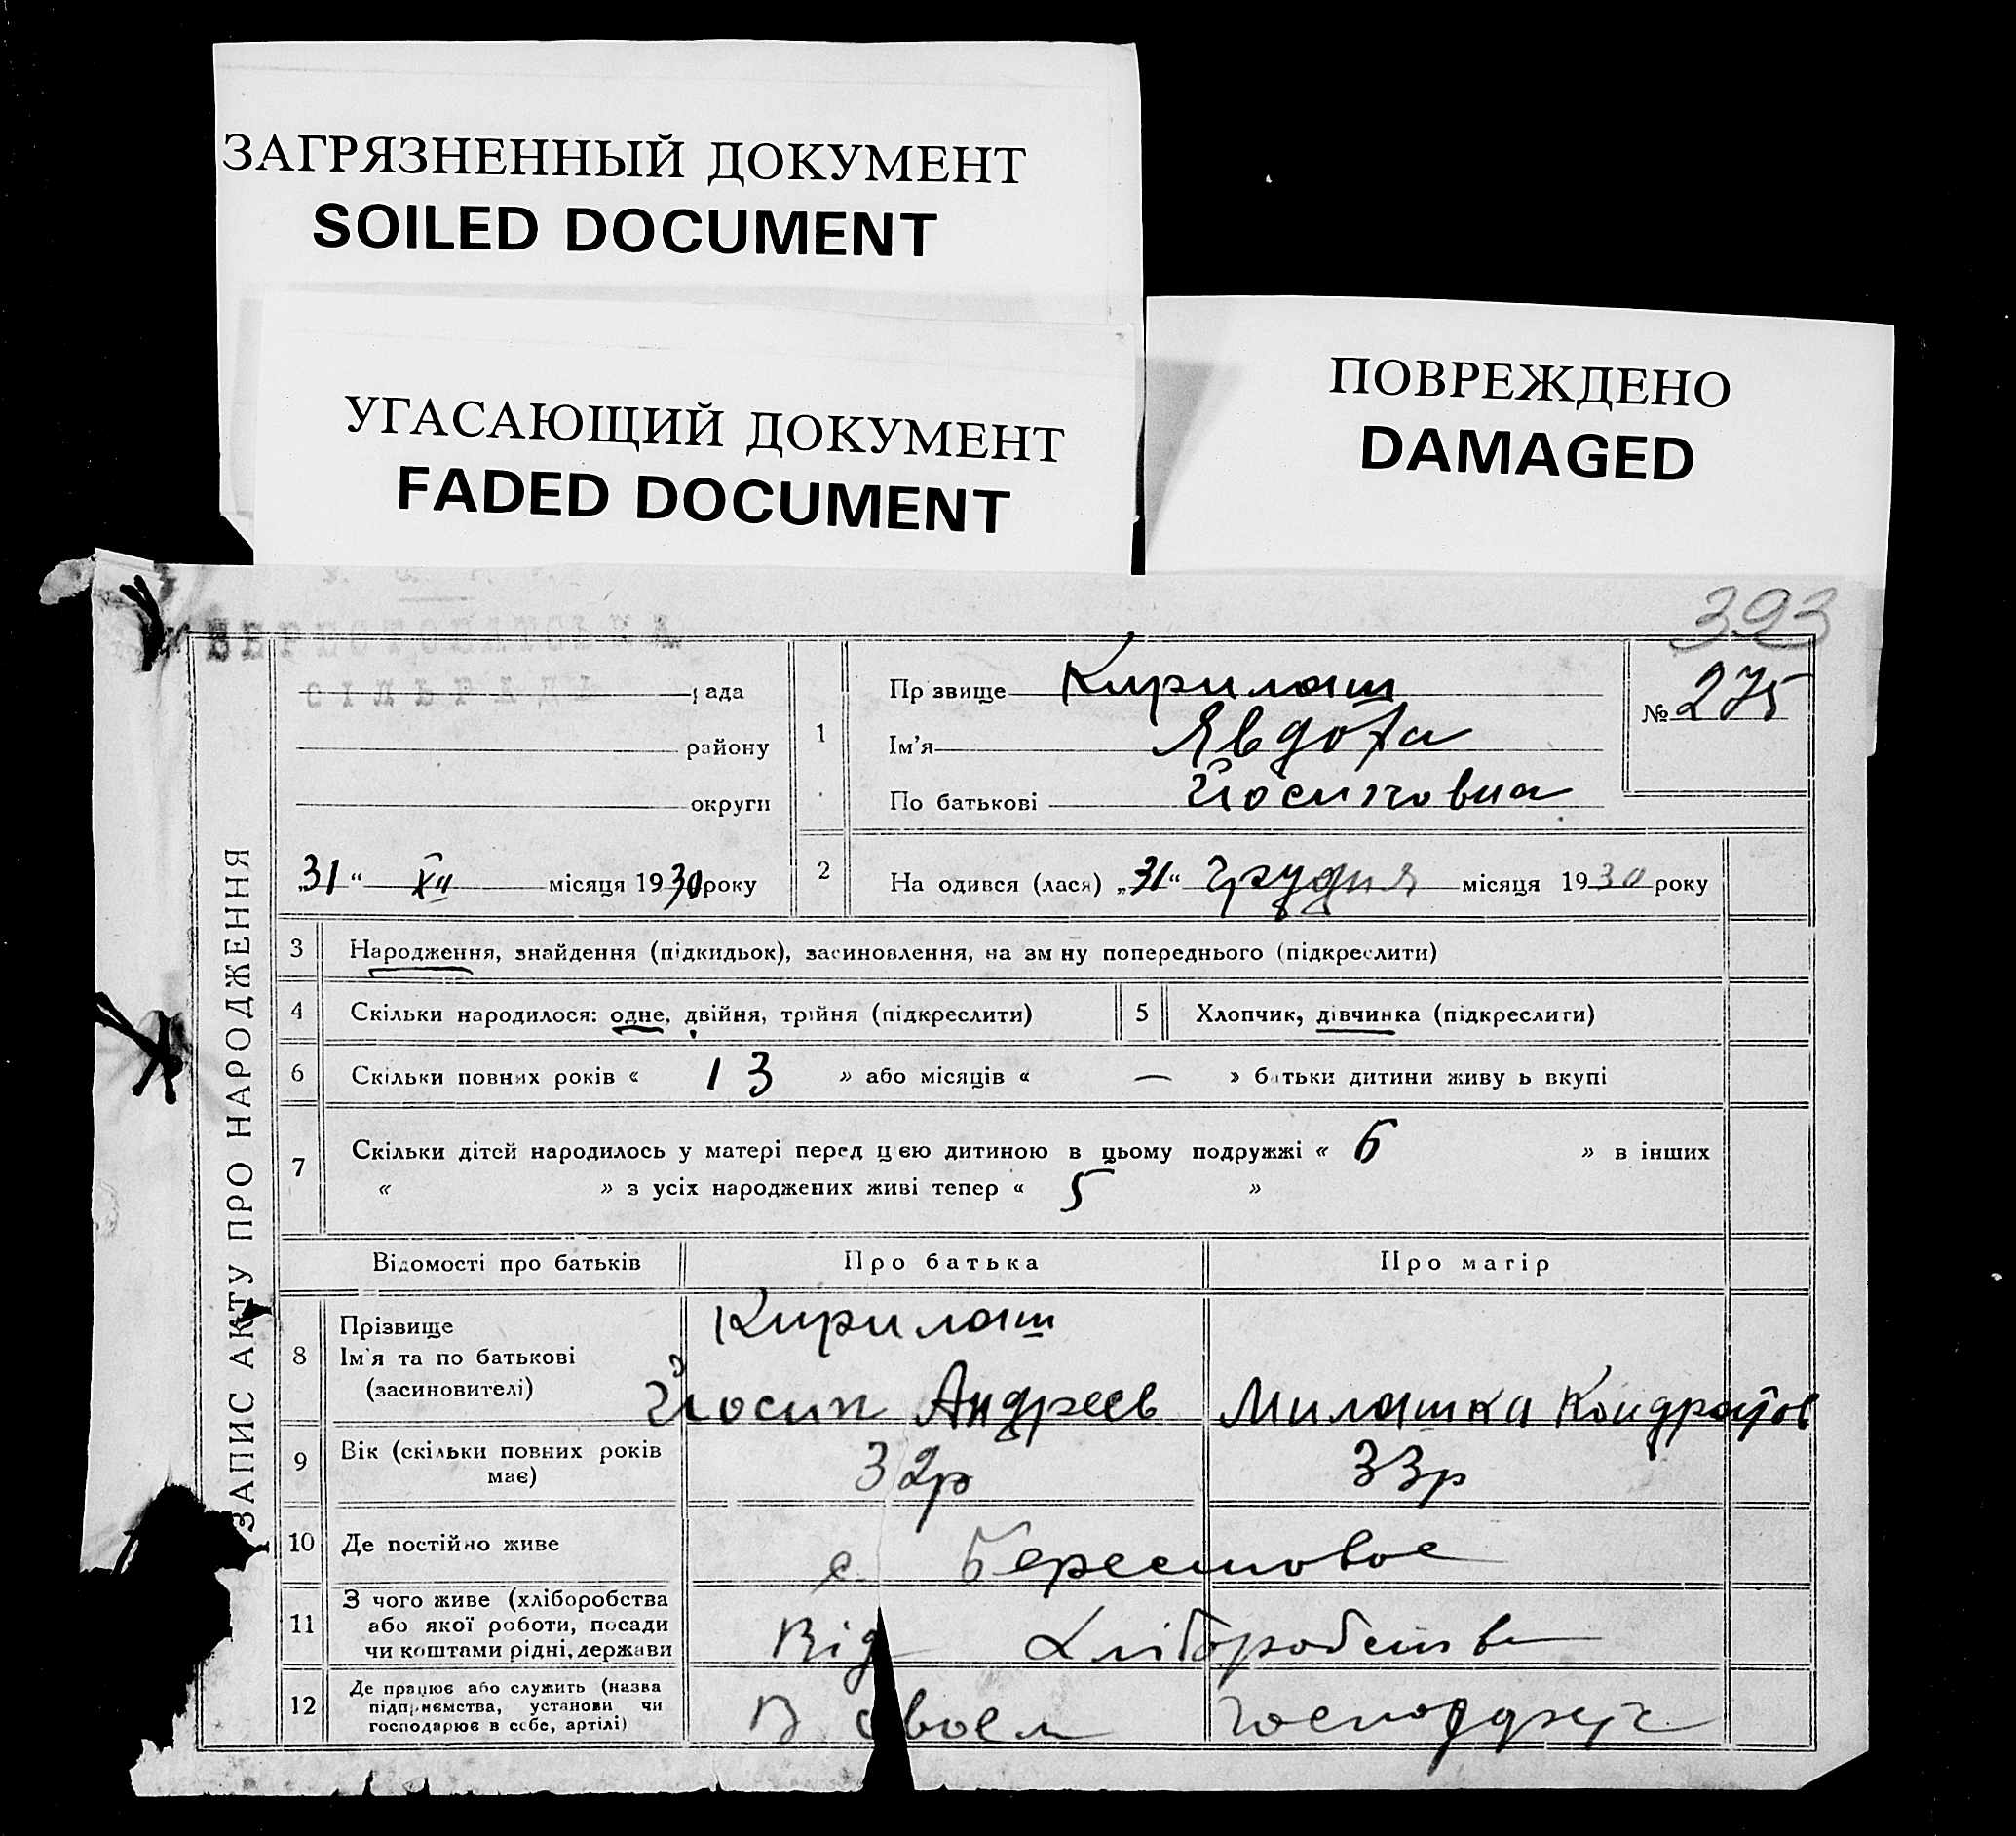 ЗАГРЯЗНЕННЫЙ ДОКУМЕНТ
SOILED DOCUMENT
УГАСАЮЩИЙ ДОКУМЕНТ
FADED DOCUMENT
ПОВРЕЖДЕНО
DAMAGED
393
ЗАПИС АКТУ ПРО НАРОДЖЕННЯ
СІЛЬРАДА рада
району
округи
„31“ XII місяця 1930 року
1 Прізвище Кирилаш
Ім'я Явдоха
По батькові Йосиповна
№ 275
2 Народився (лася) „31“ грудня місяця 1930 року
3 Народження, знайдення (підкидьок), засиновлення, на зміну попереднього (підкреслити)
4 Скільки народилося: одне, двійня, трійня (підкреслити)
5 Хлопчик, дівчинка (підкреслити)
6 Скільки повних років « 13 » або місяців « — » батьки дитини живуть вкупі
7 Скільки дітей народилось у матері перед цією дитиною в цьому подружжі « 6 » в інших
« » з усіх народжених живі тепер « 5 »
Відомості про батьків Про батька Про матір
8 Прізвище
Ім'я та по батькові
(засиновителі)
Кирилаш
Йосип Андреєв
Милашка Кондратов
9 Вік (скільки повних років
має)
32р
33р
10 Де постійно живе
с. Берестовое
11 З чого живе (хліборобства
або якої роботи, посади
чи коштами рідні, держави
Від Хліборобства
12 Де працює або служить (назва
підприємства, установи чи
господарює в себе, артілі)
В своем